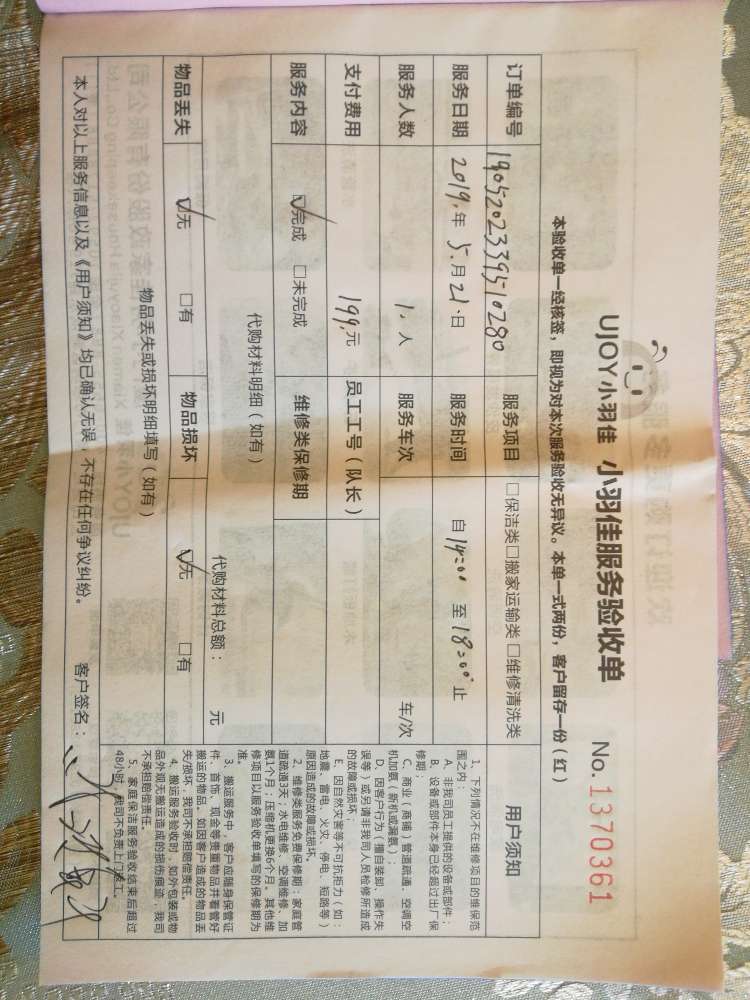 UJOY小羽佳 小羽佳服务验收单 No. 1370361
本验收单一经核签，即视为对本次服务验收无异议。本单一式两份，客户留存一份（红）
订单编号 190520233951028० 服务项目 □保洁类□搬家运输类 □维修清洗类 用户须知
服务日期 2019.年 5.月21.日 服务时间 自14:00 至18:00止
服务人数 1.人 服务车次 车/次
支付费用 199.元 员工工号（队长）
服务内容 ☑完成 □未完成 维修类保修期
代购材料明细（如有） 代购材料总额： 元
物品丢失 ☑无 □有 物品损坏 ☑无 □有
物品丢失或损坏明细填写（如有）
本人对以上服务信息以及《用户须知》均已确认无误，不存在任何争议纠纷。 客户签名：
1、下列情况不在维修项目的维保范
围之内：
A、非我司员工提供的设备或部件；
B、设备或部件本身已经超过出厂保
修期；
C、商业（商铺）管道疏通，空调空
机加氨（新机或漏氨）；
D、因客户行为（擅自装卸、操作失
误等）或另请非我司人员检修所造成
的故障或损坏；
E、因自然灾害等不可抗拒力（如：
地震、雷电、火灾、停电、短路等）
原因造成的故障或损坏。
2、维修类服务免费保修期：家庭管
道疏通3天；水电维修、空调维修、加
氨1个月；压缩机更换6个月。其他维
修项目以服务验收单填写的保修期为
准。
3、搬运服务中，客户应随身保管证
件、首饰、现金等贵重物品并看管好
搬运的物品。如因客户造成的物品丢
失/损坏，我司不承担赔偿责任。
4、搬运服务验收时，如外包装或物
品外观无搬运造成的损伤痕迹，我司
不承担赔偿责任。
5、家庭保洁服务验收结束后超过
48小时，我司不负责上门返工。